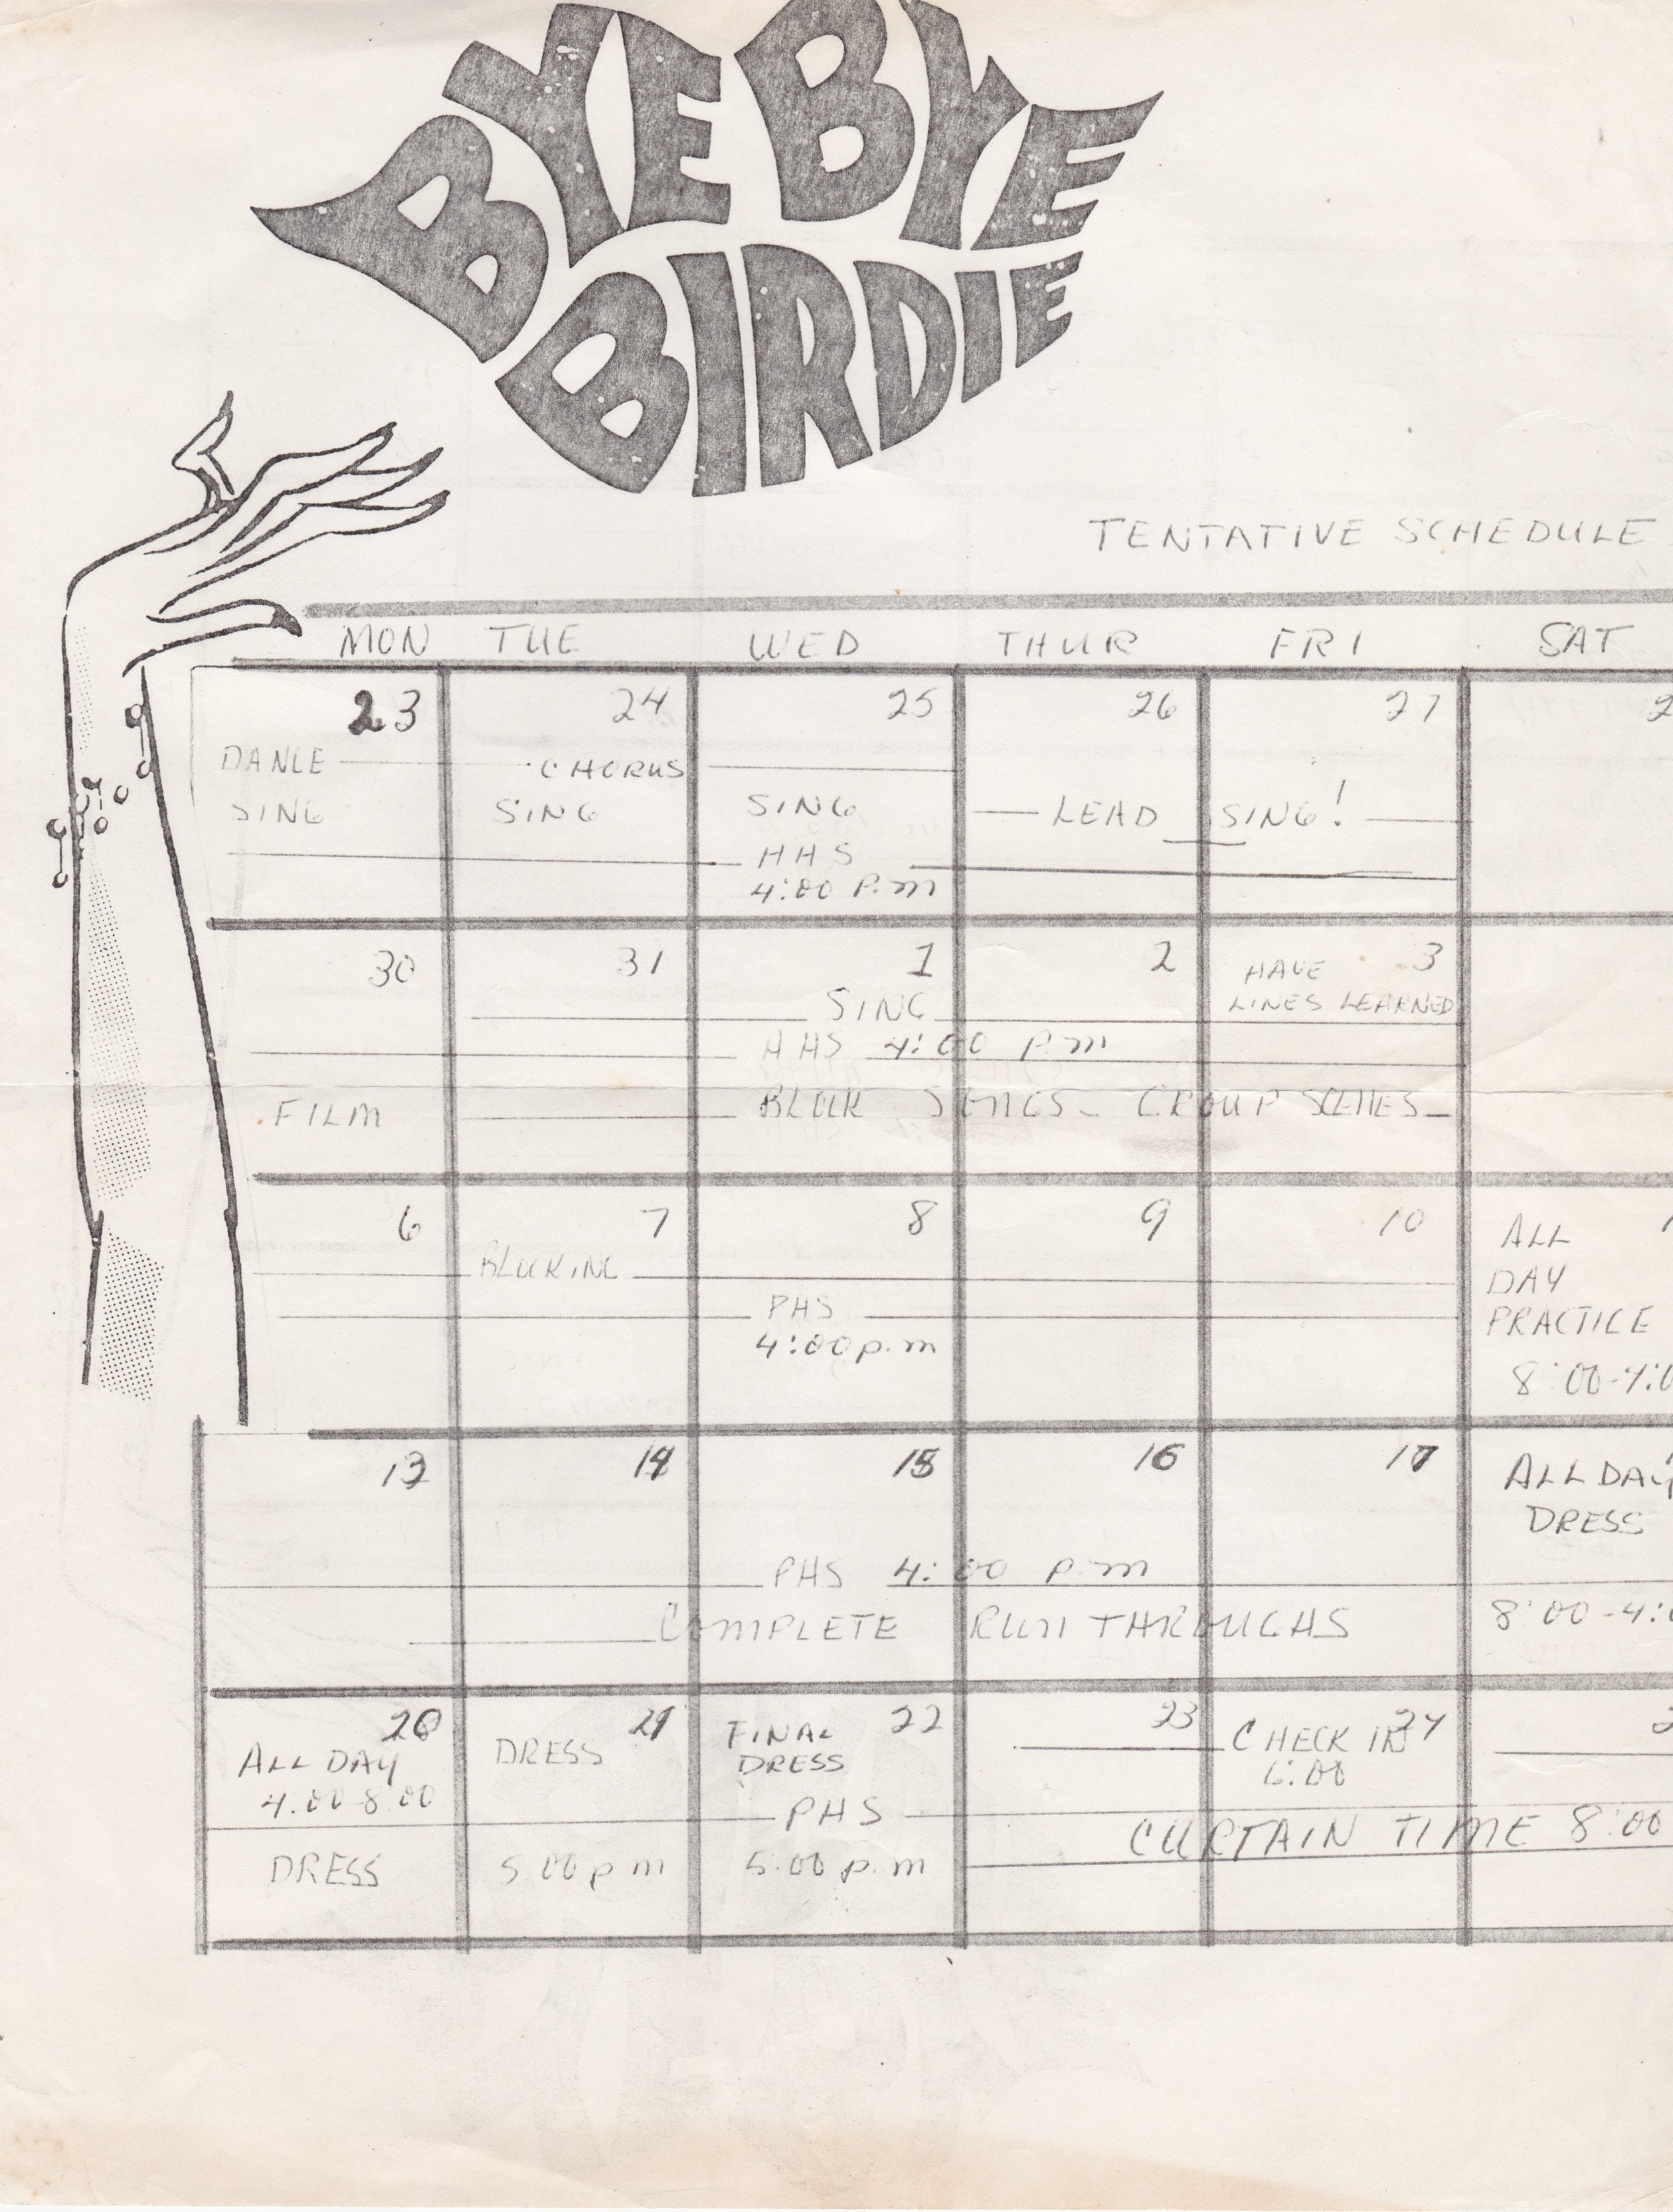 BYE BYE
BIRDIE
TENTATIVE SCHEDULE
MON TUE WED THUR FRI SAT
23 24 25 26 27 2
DANCE CHORUS
SING SING SING LEAD SING!
HHS
4:00 P.m
30 31 1 2 HAVE 3
LINES LEARNED
SING
HHS 4:00 p m
FILM BLOCK SCENES - GROUP SCENES
6 7 8 9 10 ALL 1
BLOCKING DAY
PHS PRACTICE
4:00 p.m 8:00-4:0
13 14 15 16 17 ALL DAY
DRESS
PHS 4:00 p m
COMPLETE RUN THROUGHS 8:00-4:0
20 21 22 23 24 2
ALL DAY DRESS FINAL CHECK IN
4:00-8:00 DRESS 6:00
PHS CURTAIN TIME 8:00
DRESS 5:00 p m 5:00 p.m